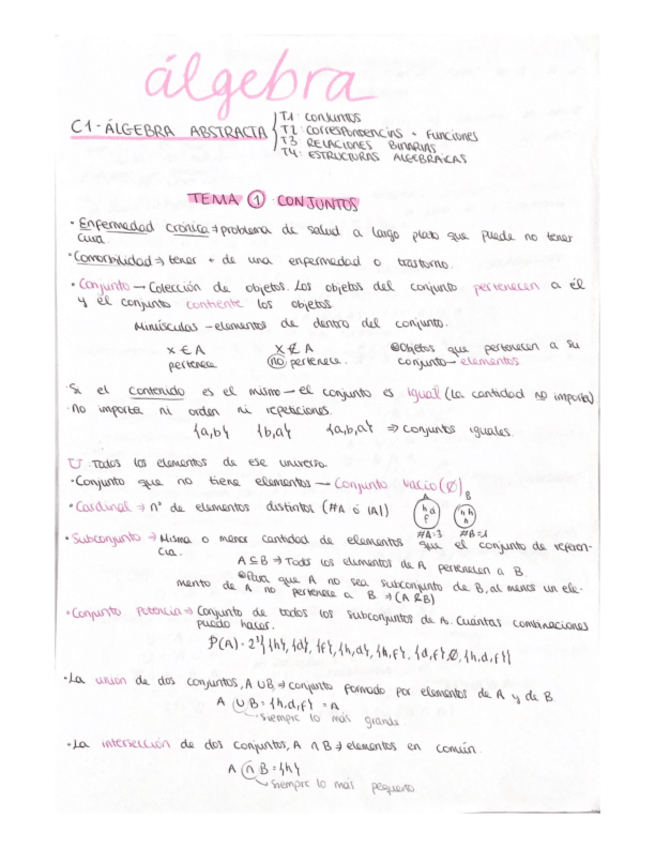 álgebra
C1-ÁLGEBRA ABSTRACTA
T.1: conjuntos
T2: correspondencias + Funciones
T3: RELACIONES BINARIAS
T4: ESTRUCTURAS ALGEBRAICAS
TEMA 1 · CONJUNTOS
· Enfermedad crónica → problema de salud a largo plazo que puede no tener
cura.
· Comorbilidad → tener + de una enfermedad o trastorno.
· Conjunto → Colección de objetos. Los objetos del conjunto pertenecen a él
y el conjunto contiene los objetos
Minúsculas - elementos de dentro del conjunto.
x ∈ A x ∉ A Objetos que pertenecen a su
pertenece no pertenece. conjunto - elementos
· Si el contenido es el mismo - el conjunto es igual (la cantidad no importa)
· no importa ni orden ni repeticiones.
{a,b} {b,a} {a,b,a} ⇒ conjuntos iguales.
U: Todos los elementos de ese universo.
· Conjunto que no tiene elementos - Conjunto vacío (∅)
· Cardinal → nº de elementos distintos (#A ó |A|)
A B
h d f
h h h
#A=3 #B=1
· Subconjunto → Misma o menor cantidad de elementos que el conjunto de referen-
cia.
A ⊆ B → Todos los elementos de A pertenecen a B
Para que A no sea subconjunto de B, al menos un ele-
mento de A no pertenece a B → (A ⊈ B)
· Conjunto potencia → Conjunto de todos los subconjuntos de A. Cuántas combinaciones
puedo hacer.
P(A) = 2³ {{h}, {d}, {f}, {h,d}, {h,f}, {d,f}, ∅, {h,d,f}}
· La unión de dos conjuntos, A ∪ B, → conjunto formado por elementos de A y de B
A ∪ B = {h,d,f} = A
siempre lo más grande.
· La intersección de dos conjuntos, A ∩ B → elementos en común.
A ∩ B = {h}
siempre lo más pequeño.